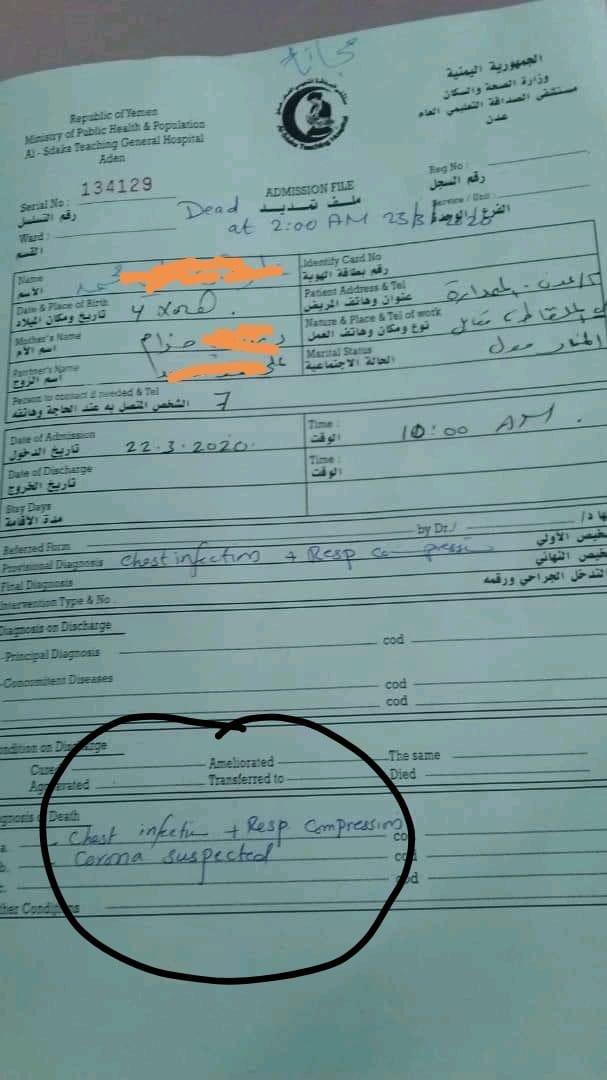 مجانا
Republic of Yemen
Ministry of Public Health & Population
Al - Sdaka Teaching General Hospital
Aden
Al-Sdaka Teaching Hospital
الجمهورية اليمنية
وزارة الصحة والسكان
مستشفى الصداقة التعليمي العام
عدن
Serial No : 134129
رقم التسلسل
ADMISSION FILE
ملف تمديد
Reg No :
رقم السجل
Ward :
القسم
Service / Unit :
الفرع / الوحدة
Dead at 2:00 AM 23/3/2020
Name
الأسم
Identify Card No
رقم بطاقة الهوية
Date & Place of Birth
تاريخ ومكان الميلاد
Patient Address & Tel
عنوان وهاتف المريض
Mother's Name
اسم الأم
حزام
Nature & Place & Tel of work
نوع ومكان وهاتف العمل
Partner's Name
اسم الزوج
علي
Marital Status
الحالة الاجتماعية
Person to contact if needed & Tel
الشخص المتصل به عند الحاجة وهاتفه
7
Date of Admission
تاريخ الدخول
22.3.2020
Time :
الوقت
10:00 AM.
Date of Discharge
تاريخ الخروج
Time :
الوقت
Stay Days
مدة الأقامة
Referred Form
by Dr./
Provisional Diagnosis Chest infection + Resp
Final Diagnosis
Intervention Type & No .
التدخل الجراحي ورقمه
Diagnosis on Discharge
-Principal Diagnosis cod
-Concomitent Diseases cod
cod
Condition on Discharge
Cured Ameliorated The same
Aggravated Transferred to Died
Diagnosis of Death
a. Chest infection + Resp Compression cod
b. Corona suspected cod
c. cod
Other Conditions